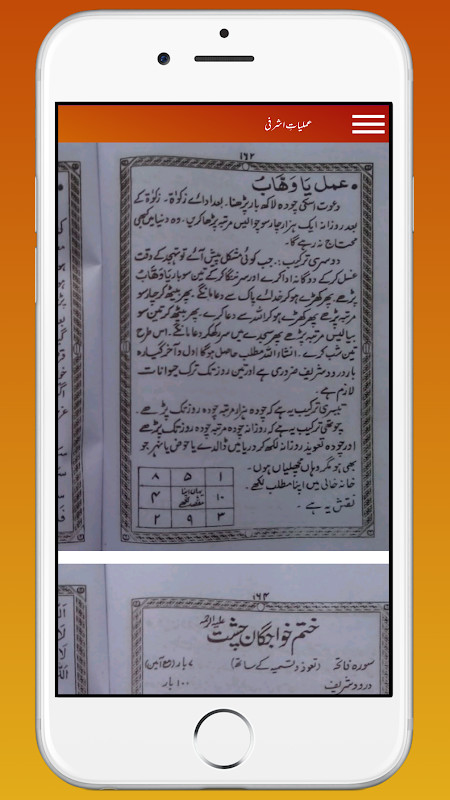 عملیاتِ اشرفی
۱۶۲
• عمل یَا وَھَّابُ
دعوت اسکی چودہ لاکھ بار پڑھنا۔ بعد ادائے زکوٰۃ۔ زکوٰۃ کے
بعد روزانہ ایک ہزار چار سو چوالیس مرتبہ پڑھا کریں، وہ دنیا میں کبھی
محتاج نہ رہے گا۔
دوسری ترکیب:۔ جب کوئی مشکل پیش آئے تو تہجد کے وقت
غسل کر کے دوگانہ ادا کرے اور سر ننگا کر کے تین سو بار یَا وَھَّابُ
پڑھے پھر کھڑے ہو کر خدائے پاک سے دعا مانگے۔ پھر بیٹھ کر چار سو
مرتبہ پڑھے پھر کھڑے ہو کر اللہ سے دعا کرے۔ پھر بیٹھ کر تین سو
بیالیس مرتبہ پڑھے پھر سجدے میں سر رکھ کر دعا مانگے۔ اس طرح
تین شب کرے۔ انشاء اللہ مطلب حاصل ہو گا اول و آخر گیارہ
بار درود شریف ضروری ہے اور تین روز تک ترک حیوانات
لازم ہے۔
تیسری ترکیب یہ ہے کہ چودہ ہزار مرتبہ چودہ روز تک پڑھے۔
چوتھی ترکیب یہ ہے کہ روزانہ چودہ مرتبہ چودہ روز تک پڑھے
اور چودہ تعویذ روزانہ لکھ کر دریا میں ڈالدے یا حوض یا نہر جو
بھی ہو مگر وہاں مچھلیاں ہوں۔
خانہ خالی میں اپنا مطلب لکھے۔
نقش یہ ہے۔
۱ ۵ ۸
۱۰ یہاں اپنا مقصد لکھے ۴
۳ ۹ ۲
۱۶۳
ختم خواجگان چشت علیہ الرحمہ
سورہ فاتحہ (تعوذ و تسمیہ کے ساتھ) ۷ بار (مع آمین)
درود شریف ۱۰۰ بار